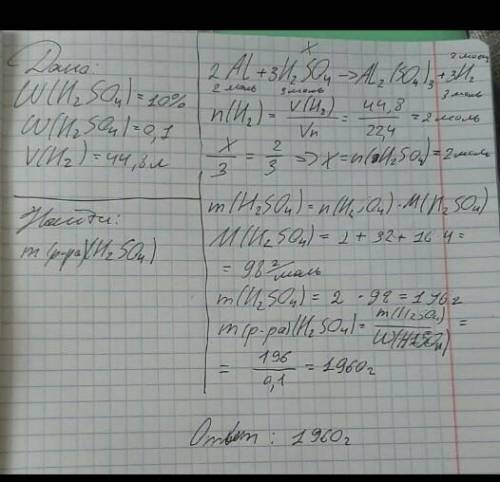 Дано:
W(H₂SO₄)=10%
W(H₂SO₄)=0,1
V(H₂)=44,8л
Найти:
m(р-ра)(H₂SO₄)
x 2 моль
2Al+3H₂SO₄->Al₂(SO₄)₃+3H₂
2 моль 3 моль 3 моль
n(H₂)=V(H₂)/Vn=44,8/224=2 моль
x/3=2/3=>x=n(H₂SO₄)=2 моль
m(H₂SO₄)=n(H₂SO₄)·M(H₂SO₄)
M(H₂SO₄)=2+32+16·4=
=98 г/моль
m(H₂SO₄)=2·98=196г
m(р-ра)(H₂SO₄)=m(H₂SO₄)/W(H₂SO₄)=
=196/0,1=1960г
Ответ: 1960г